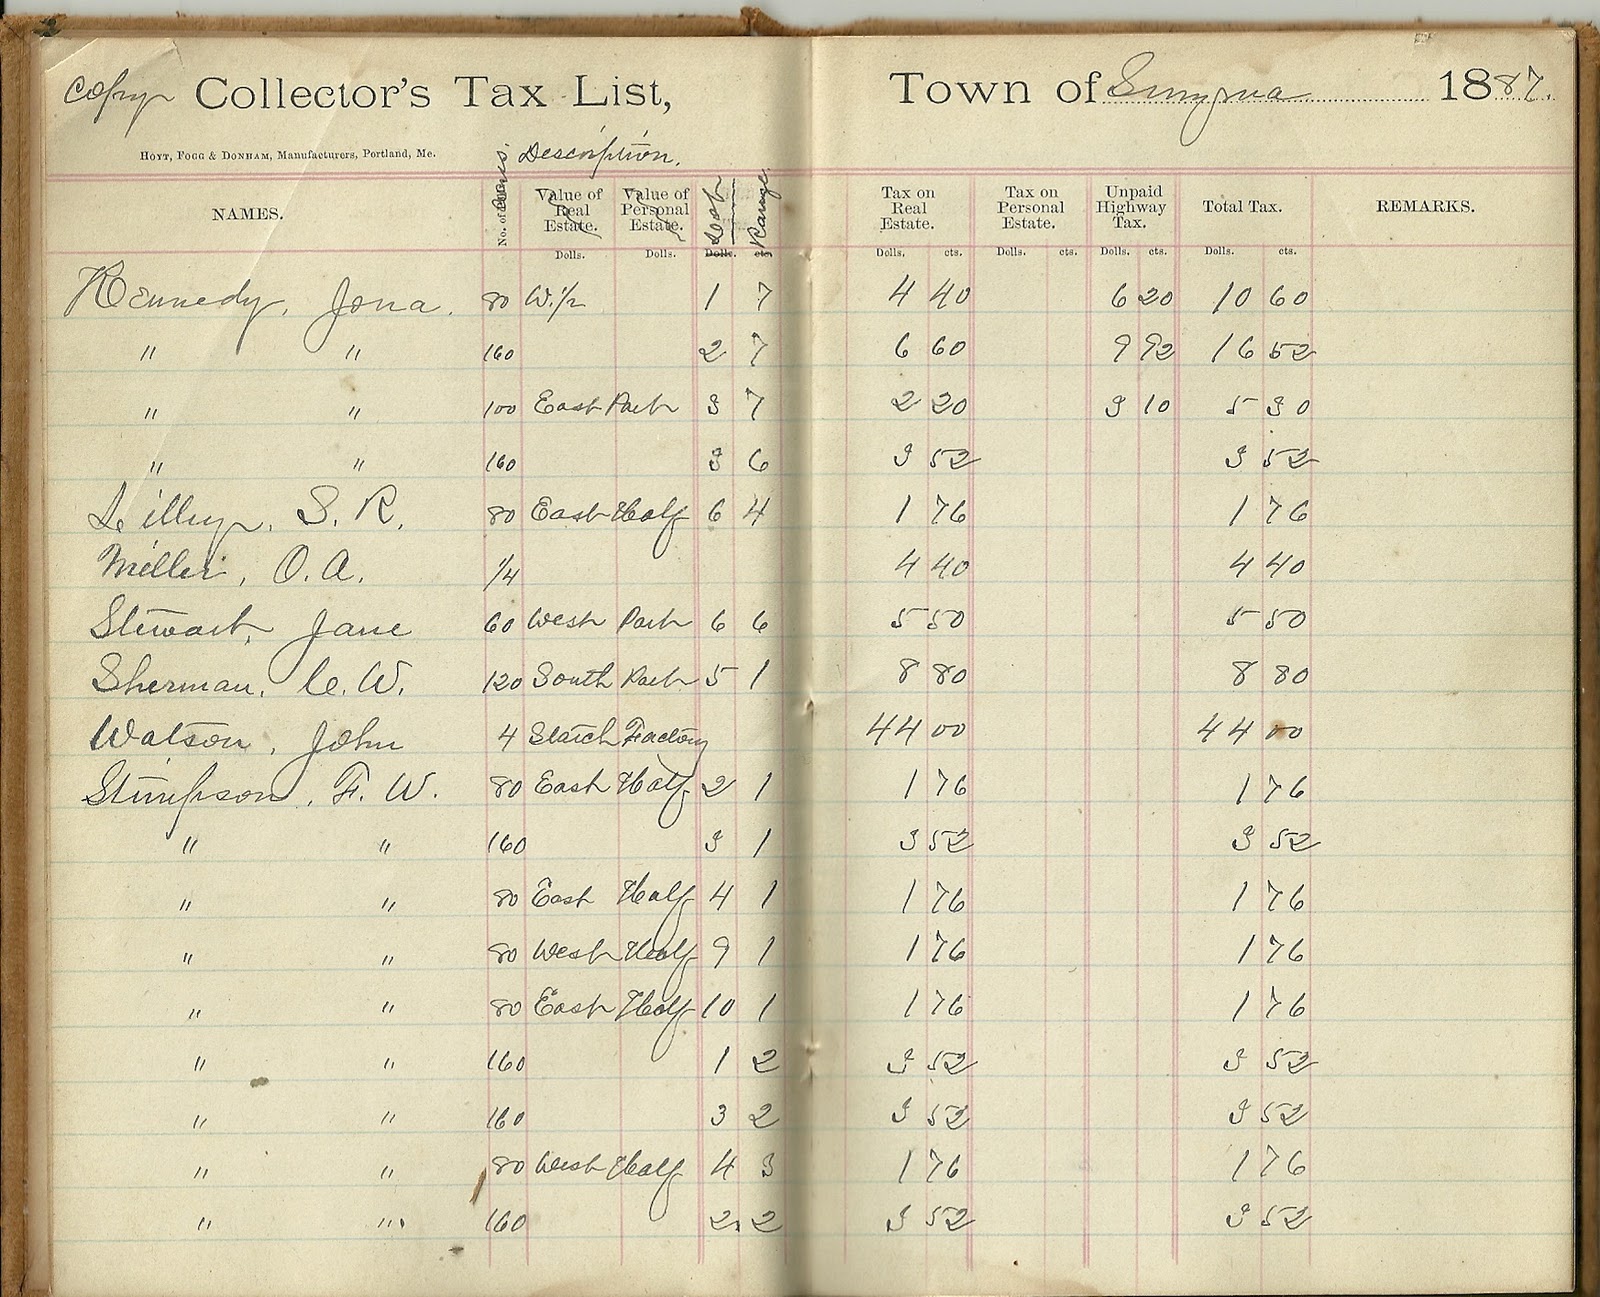 copy Collector's Tax List, Town of Smyrna 1887.
Hoyt, Fogg & Donham, Manufacturers, Portland, Me. Description.
NAMES. No. of Value of Real Estate. Value of Personal Estate. Lot Range Tax on Real Estate. Tax on Personal Estate. Unpaid Highway Tax. Total Tax. REMARKS.
Dolls. Dolls. Dolls. cts. Dolls. cts. Dolls. cts. Dolls. cts. Dolls. cts.
Kennedy, Jona. 80 W. 1/2 1 7 4 40 6 20 10 60
" " 160 2 7 6 60 9 92 16 52
" " 100 East Part 3 7 2 20 3 10 5 30
" " 160 3 6 3 52 3 52
Lilley, S. R. 80 East Half 6 4 1 76 1 76
Miller, O. A. 1/4 4 40 4 40
Stewart, Jane 60 West Part 6 6 5 50 5 50
Sherman, C. W. 120 South Part 5 1 8 80 8 80
Watson, John 4 Starch Factory 44 00 44 00
Stimpson, F. W. 80 East Half 2 1 1 76 1 76
" " 160 3 1 3 52 3 52
" " 80 East Half 4 1 1 76 1 76
" " 80 West Half 9 1 1 76 1 76
" " 80 East Half 10 1 1 76 1 76
" " 160 1 2 3 52 3 52
" " 160 3 2 3 52 3 52
" " 80 West Half 4 3 1 76 1 76
" " 160 2 2 3 52 3 52